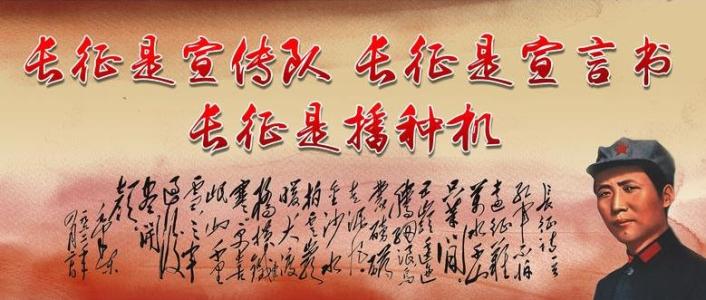 长征是宣传队 长征是宣言书
长征是播种机
长征诗一首
红军不怕
远征难
万水千山
只等闲
五岭逶迤
腾细浪乌
蒙磅礴
走泥丸
金沙水
拍云
暖大渡
桥横铁索
寒更喜
岷山千里
雪三军
过后
尽开
颜
毛泽东
一九六二年
四月